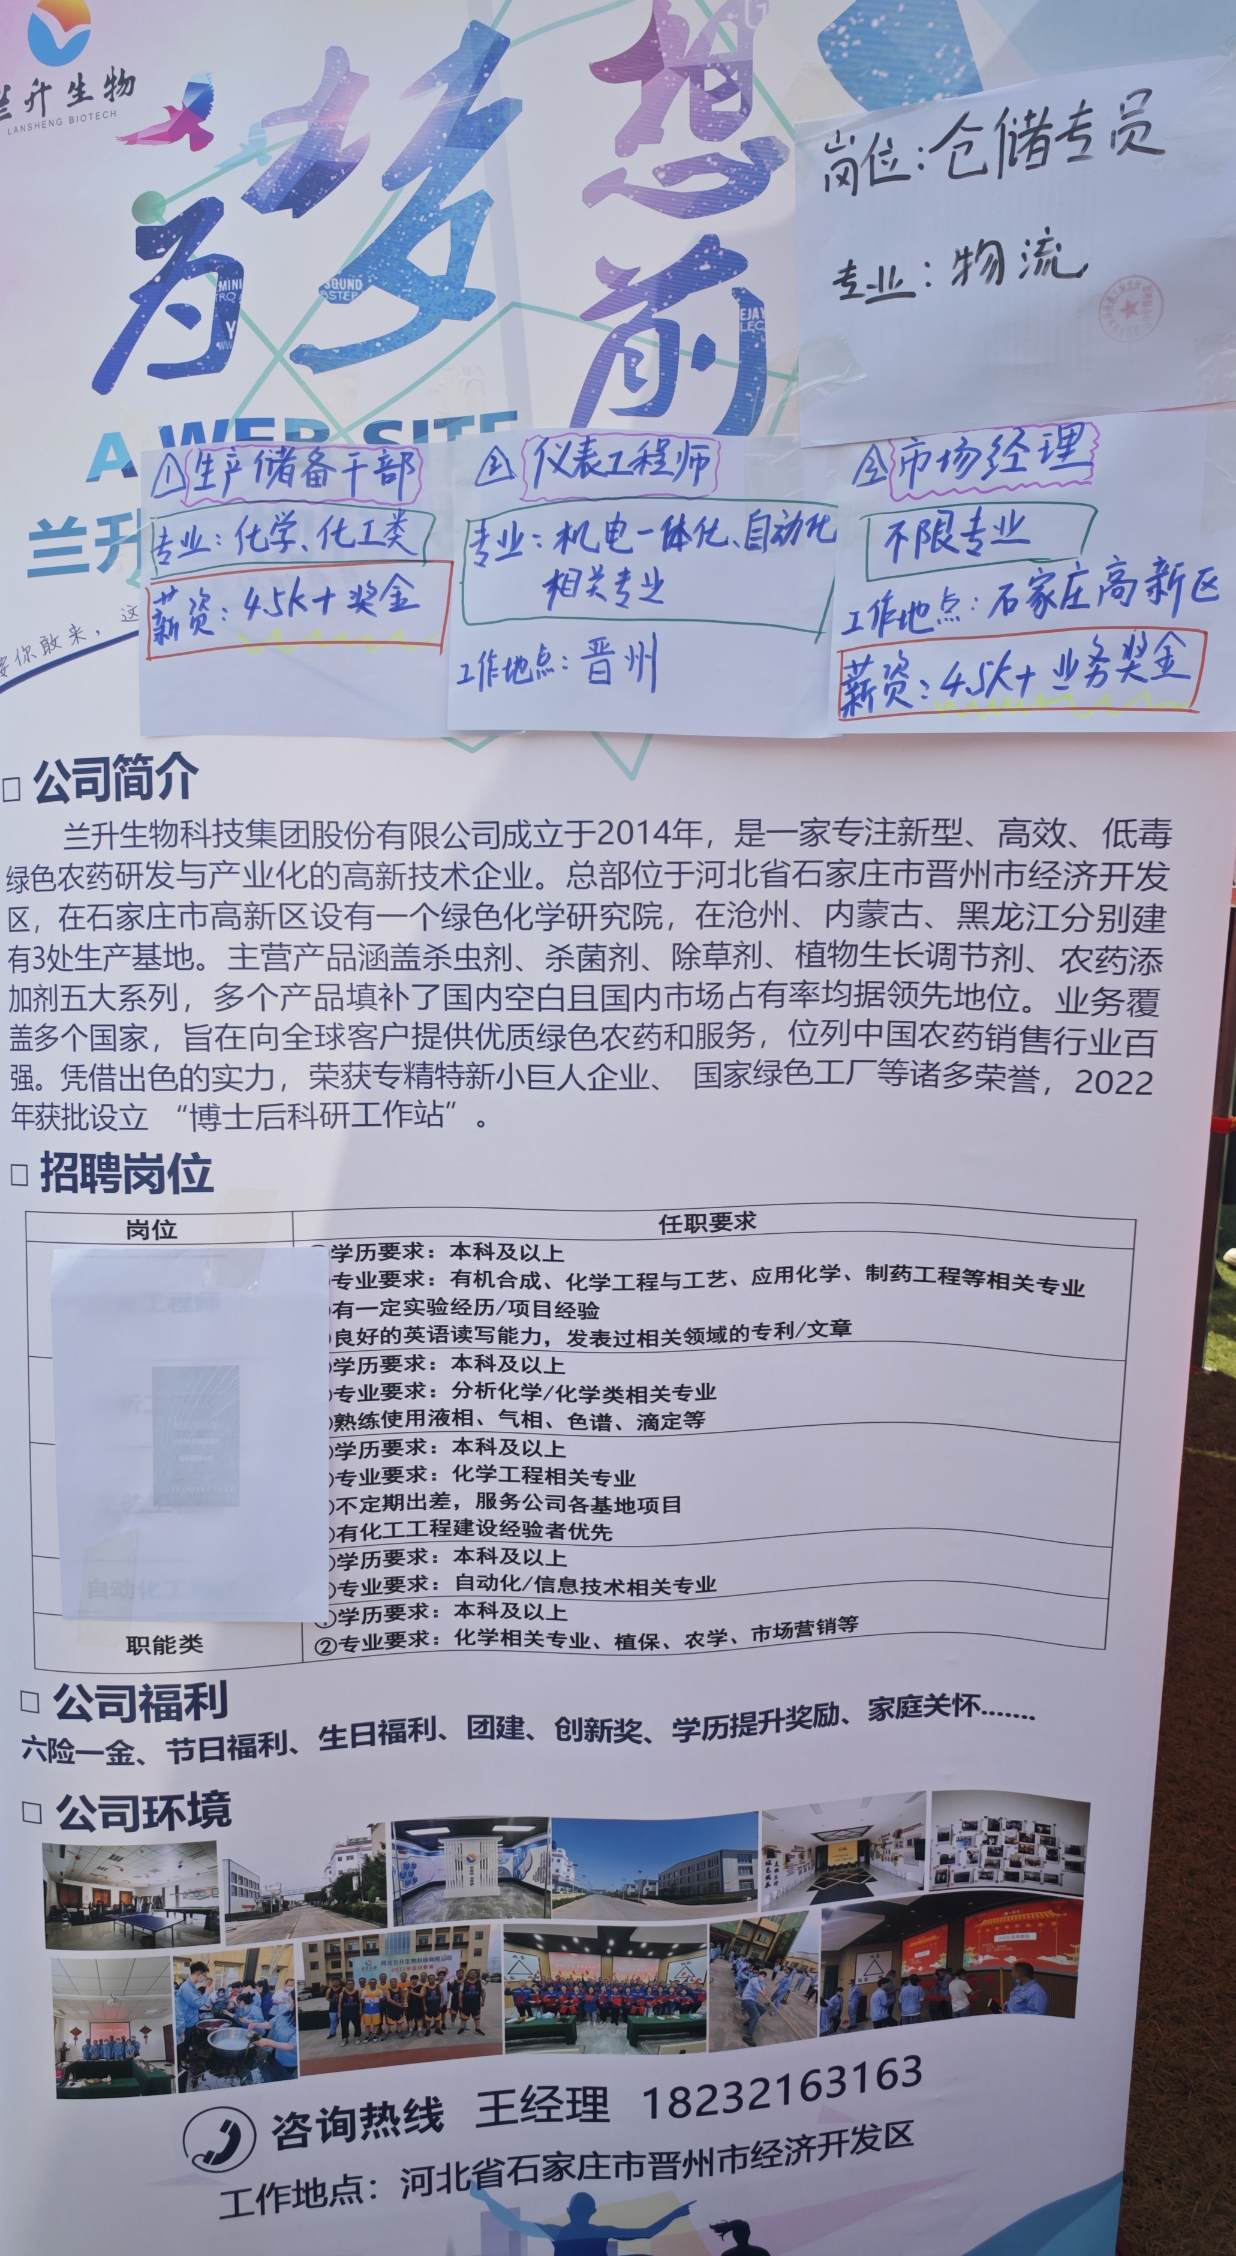 兰升生物
LANSHENG BIOTECH
为梦想
前
MINI
SOUND
A WEB SITE
兰升
岗位：仓储专员
专业：物流
① 生产储备干部
专业：化学、化工类
薪资：4.5K+奖金
② 仪表工程师
专业：机电一体化、自动化
相关专业
工作地点：晋州
③ 市场经理
不限专业
工作地点：石家庄高新区
薪资：4.5K+业务奖金
你敢来，这
□ 公司简介
兰升生物科技集团股份有限公司成立于2014年，是一家专注新型、高效、低毒
绿色农药研发与产业化的高新技术企业。总部位于河北省石家庄市晋州市经济开发
区，在石家庄市高新区设有一个绿色化学研究院，在沧州、内蒙古、黑龙江分别建
有3处生产基地。主营产品涵盖杀虫剂、杀菌剂、除草剂、植物生长调节剂、农药添
加剂五大系列，多个产品填补了国内空白且国内市场占有率均据领先地位。业务覆
盖多个国家，旨在向全球客户提供优质绿色农药和服务，位列中国农药销售行业百
强。凭借出色的实力，荣获专精特新小巨人企业、 国家绿色工厂等诸多荣誉，2022
年获批设立 “博士后科研工作站” 。
□ 招聘岗位
岗位 任职要求
学历要求：本科及以上
专业要求：有机合成、化学工程与工艺、应用化学、制药工程等相关专业
有一定实验经历/项目经验
良好的英语读写能力，发表过相关领域的专利/文章
学历要求：本科及以上
专业要求：分析化学/化学类相关专业
熟练使用液相、气相、色谱、滴定等
学历要求：本科及以上
专业要求：化学工程相关专业
不定期出差，服务公司各基地项目
有化工工程建设经验者优先
自动化工
学历要求：本科及以上
专业要求：自动化/信息技术相关专业
职能类
①学历要求：本科及以上
②专业要求：化学相关专业、植保、农学、市场营销等
□ 公司福利
六险一金、节日福利、生日福利、团建、创新奖、学历提升奖励、家庭关怀.......
□ 公司环境
咨询热线 王经理 18232163163
工作地点：河北省石家庄市晋州市经济开发区